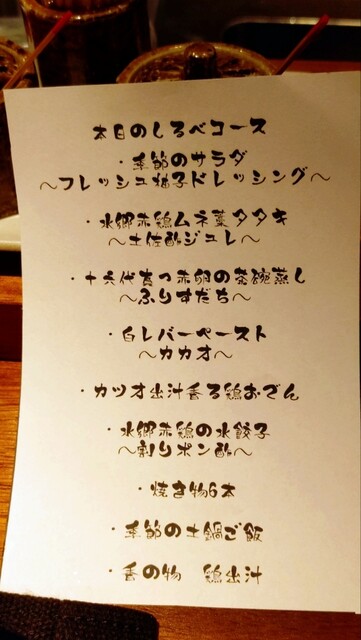 本日のしるべコース
・季節のサラダ
～フレッシュ柚子ドレッシング～
・水郷赤鶏ムネ藁タタキ
～土佐酢ジュレ～
・十六代真っ赤卵の茶碗蒸し
～ふりすだち～
・白レバーペースト
～カカオ～
・カツオ出汁香る鶏おでん
・水郷赤鶏の水餃子
～割りポン酢～
・焼き物6本
・季節の土鍋ご飯
・香の物　鶏出汁